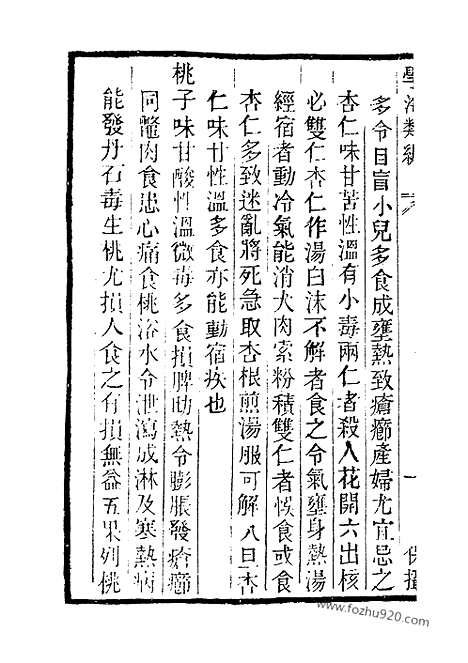 學海類編
多令目盲小兒多食成壅熱致瘡癤產婦尤宜忌之
杏仁味甘苦性溫有小毒兩仁者殺人花開六出核
必雙仁杏仁作湯白沫不解者食之令氣壅身熱湯
經宿者動冷氣能消犬肉索粉積雙仁者悞食或食
杏仁多致迷亂將死急取杏根煎湯服可解八旦杏
仁味甘性溫多食亦能動宿疾也
桃子味甘酸性溫微毒多食損脾助熱令膨脹發瘡癤
同鼈肉食患心痛食桃浴水令泄瀉成淋及寒熱病
能發丹石毒生桃尤損人食之有損無益五果列桃
www.fozhu920.com